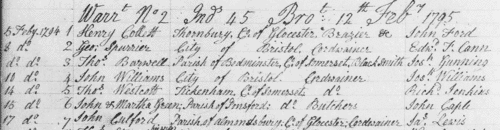 Warrt No 2 Ind 45 Brot 12th Feby 1795
5 Feby 1794 1 Henry Collett Thornbury, Co of Glocester Brazier &c John Ford
8 do 2 Geo: Spurrier City of Bristol Cordwainer Edwd T. Cann
do do 3 Thos Barwell Parish of Bedminster, Co of Somerset, Black Smith Jos: Gunning
10 do 4 John Williams City of Bristol Cordwainer Jos: Williams
14 do 5 Thos Westcott Tickenham, Co of Somerset do Richd Jenkins
16 do 6 John & Martha Green; Parish of do Butchers John Caple
17 do 7 John Parish of Almondsbury, Co of Glocester: Cordwainer Jas: Lewis